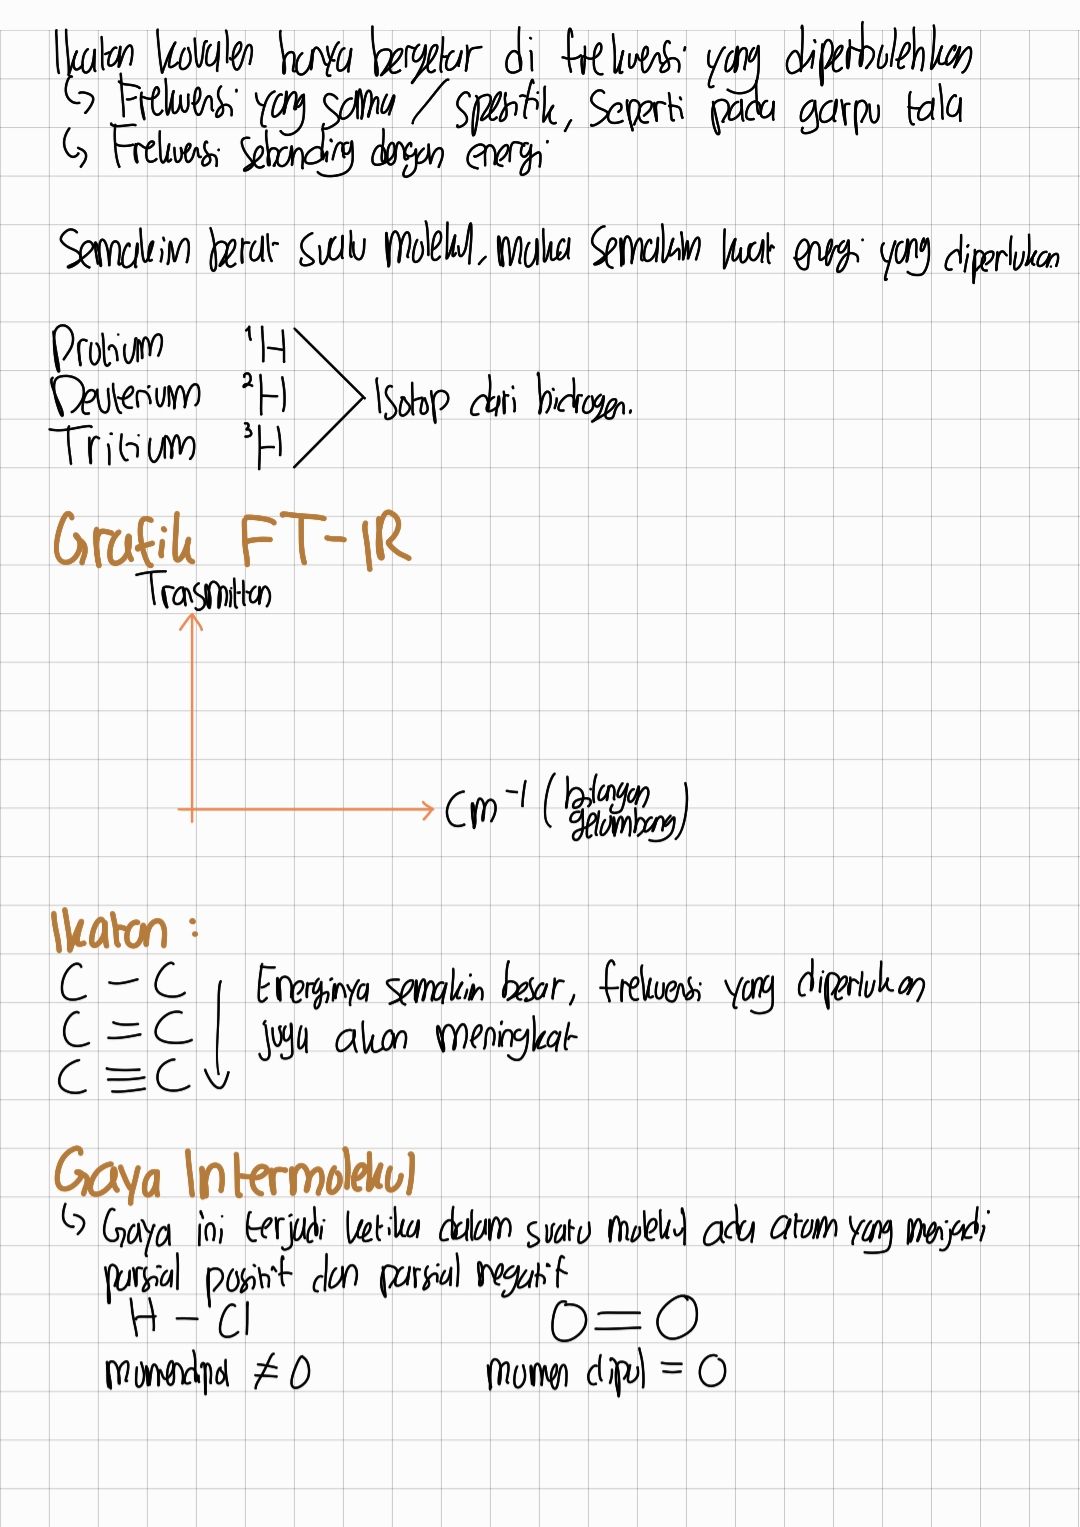 Ikatan kovalen hanya bergetar di frekuensi yang diperbolehkan
↳ Frekuensi yang sama / spesifik, seperti pada garpu tala
↳ Frekuensi sebanding dengan energi
Semakin berat suatu molekul, maka semakin kuat energi yang diperlukan
Protium ¹H
Deuterium ²H
Tritium ³H
Isotop dari hidrogen.
Grafik FT-IR
Transmittan
Cm⁻¹ (bilangan gelombang)
Ikatan :
C – C
C = C
C ≡ C
Energinya semakin besar, frekuensi yang diperlukan
juga akan meningkat
Gaya Intermolekul
↳ Gaya ini terjadi ketika dalam suatu molekul ada atom yang menjadi
parsial positif dan parsial negatif
H – Cl O = O
momen dipol ≠ 0 momen dipol = 0